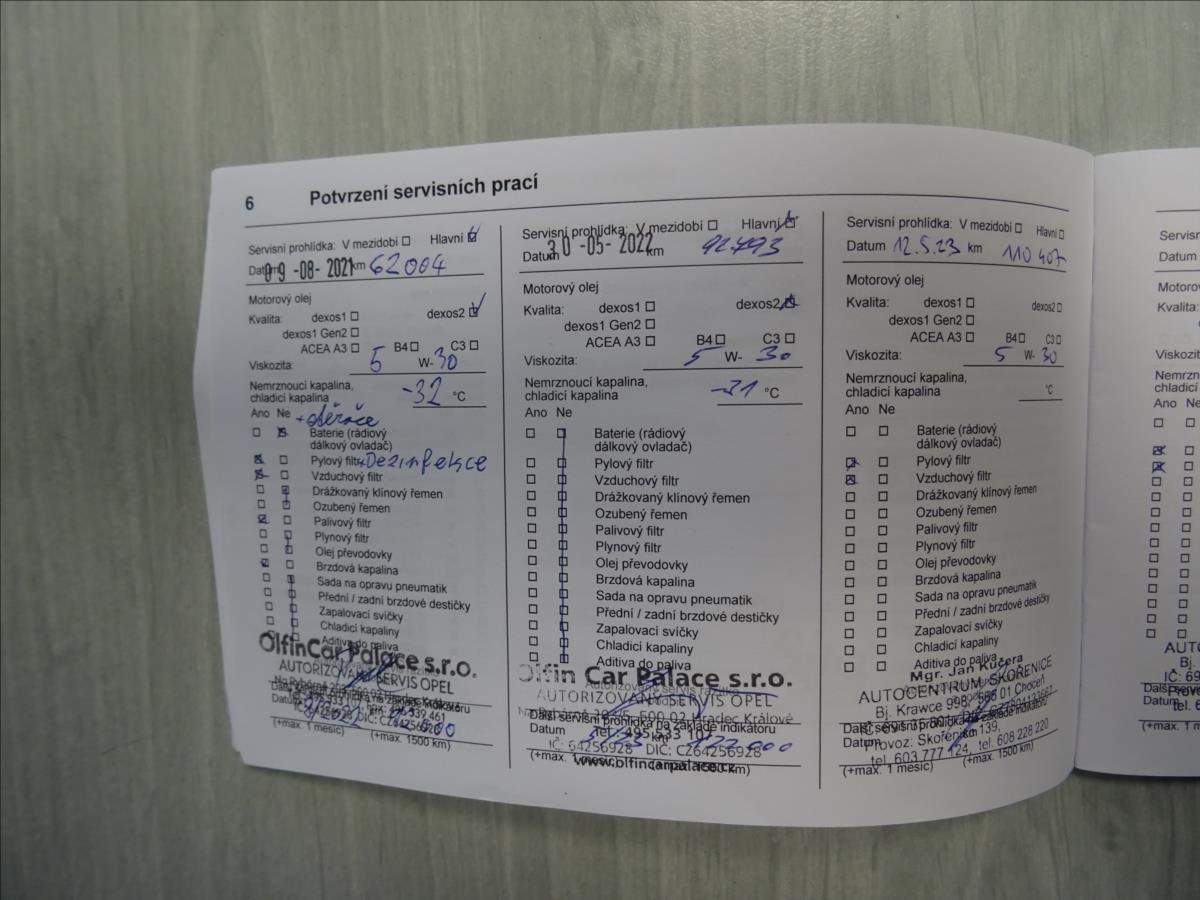 6 Potvrzení servisních prací
Servisní prohlídka: V mezidobí Hlavní
Datum 09-08-2021 km 62004
Motorový olej
Kvalita: dexos1 dexos2
dexos1 Gen2
ACEA A3 B4 C3
Viskozita: 5 W- 30
Nemrznoucí kapalina,
chladicí kapalina -32 °C
Ano Ne + stěrače
Baterie (rádiový
dálkový ovladač)
Pylový filtr + Dezinfekce
Vzduchový filtr
Drážkovaný klínový řemen
Ozubený řemen
Palivový filtr
Plynový filtr
Olej převodovky
Brzdová kapalina
Sada na opravu pneumatik
Přední / zadní brzdové destičky
Zapalovací svíčky
Chladicí kapaliny
Aditiva do paliva
OlfinCar Palace s.r.o.
AUTORIZOVANÝ SERVIS OPEL
DIČ: CZ64256928
(+max. 1 měsíc) (+max. 1500 km)
Servisní prohlídka: V mezidobí Hlavní
Datum 30-05-2022 km 92493
Motorový olej
Kvalita: dexos1 dexos2
dexos1 Gen2
ACEA A3 B4 C3
Viskozita: 5 W- 30
Nemrznoucí kapalina,
chladicí kapalina -31 °C
Ano Ne
Baterie (rádiový
dálkový ovladač)
Pylový filtr
Vzduchový filtr
Drážkovaný klínový řemen
Ozubený řemen
Palivový filtr
Plynový filtr
Olej převodovky
Brzdová kapalina
Sada na opravu pneumatik
Přední / zadní brzdové destičky
Zapalovací svíčky
Chladicí kapaliny
Aditiva do paliva
Olfin Car Palace s.r.o.
AUTORIZOVANÝ SERVIS OPEL
500 02 Hradec Králové
Další servisní prohlídka na základě indikátoru
Datum
IČ: 64256928 DIČ: CZ64256928
www.olfincarpalace.cz
Servisní prohlídka: V mezidobí Hlavní
Datum 12.5.23 km 110 407
Motorový olej
Kvalita: dexos1 dexos2
dexos1 Gen2
ACEA A3 B4 C3
Viskozita: 5 W- 30
Nemrznoucí kapalina,
chladicí kapalina °C
Ano Ne
Baterie (rádiový
dálkový ovladač)
Pylový filtr
Vzduchový filtr
Drážkovaný klínový řemen
Ozubený řemen
Palivový filtr
Plynový filtr
Olej převodovky
Brzdová kapalina
Sada na opravu pneumatik
Přední / zadní brzdové destičky
Zapalovací svíčky
Chladicí kapaliny
Aditiva do paliva
Mgr. Jan Kučera
AUTOCENTRUM SKOŘENICE
Bj. Krawce 998, 565 01 Choceň
Provoz: Skořenice 139,
tel. 603 777 124, tel. 608 228 220
(+max. 1 měsíc) (+max. 1500 km)
Servisní
Datum
Kvalita:
Viskozita
chladicí
Ano Ne